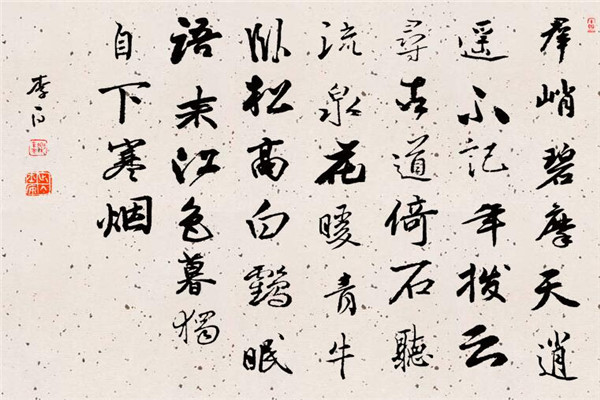 羣峭碧摩天逍
遥不記年拨云
尋古道倚石聽
流泉花暖青牛
卧松高白鶴眠
語来江色暮獨
自下寒烟
李